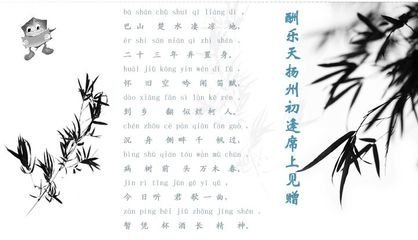 酬乐天扬州初逢席上见赠
bā shān chǔ shuǐ qī liáng dì ，
巴山楚水凄凉地，
èr shí sān nián qì zhì shēn 。
二十三年弃置身。
huái jiù kōng yín wén dí fù ，
怀旧空吟闻笛赋，
dào xiāng fān sì làn kē rén 。
到乡翻似烂柯人。
chén zhōu cè pàn qiān fān guò ，
沉舟侧畔千帆过，
bìng shù qián tóu wàn mù chūn 。
病树前头万木春。
jīn rì tīng jūn gē yì qǔ ，
今日听君歌一曲，
zàn píng bēi jiǔ zhǎng jīng shén 。
暂凭杯酒长精神。